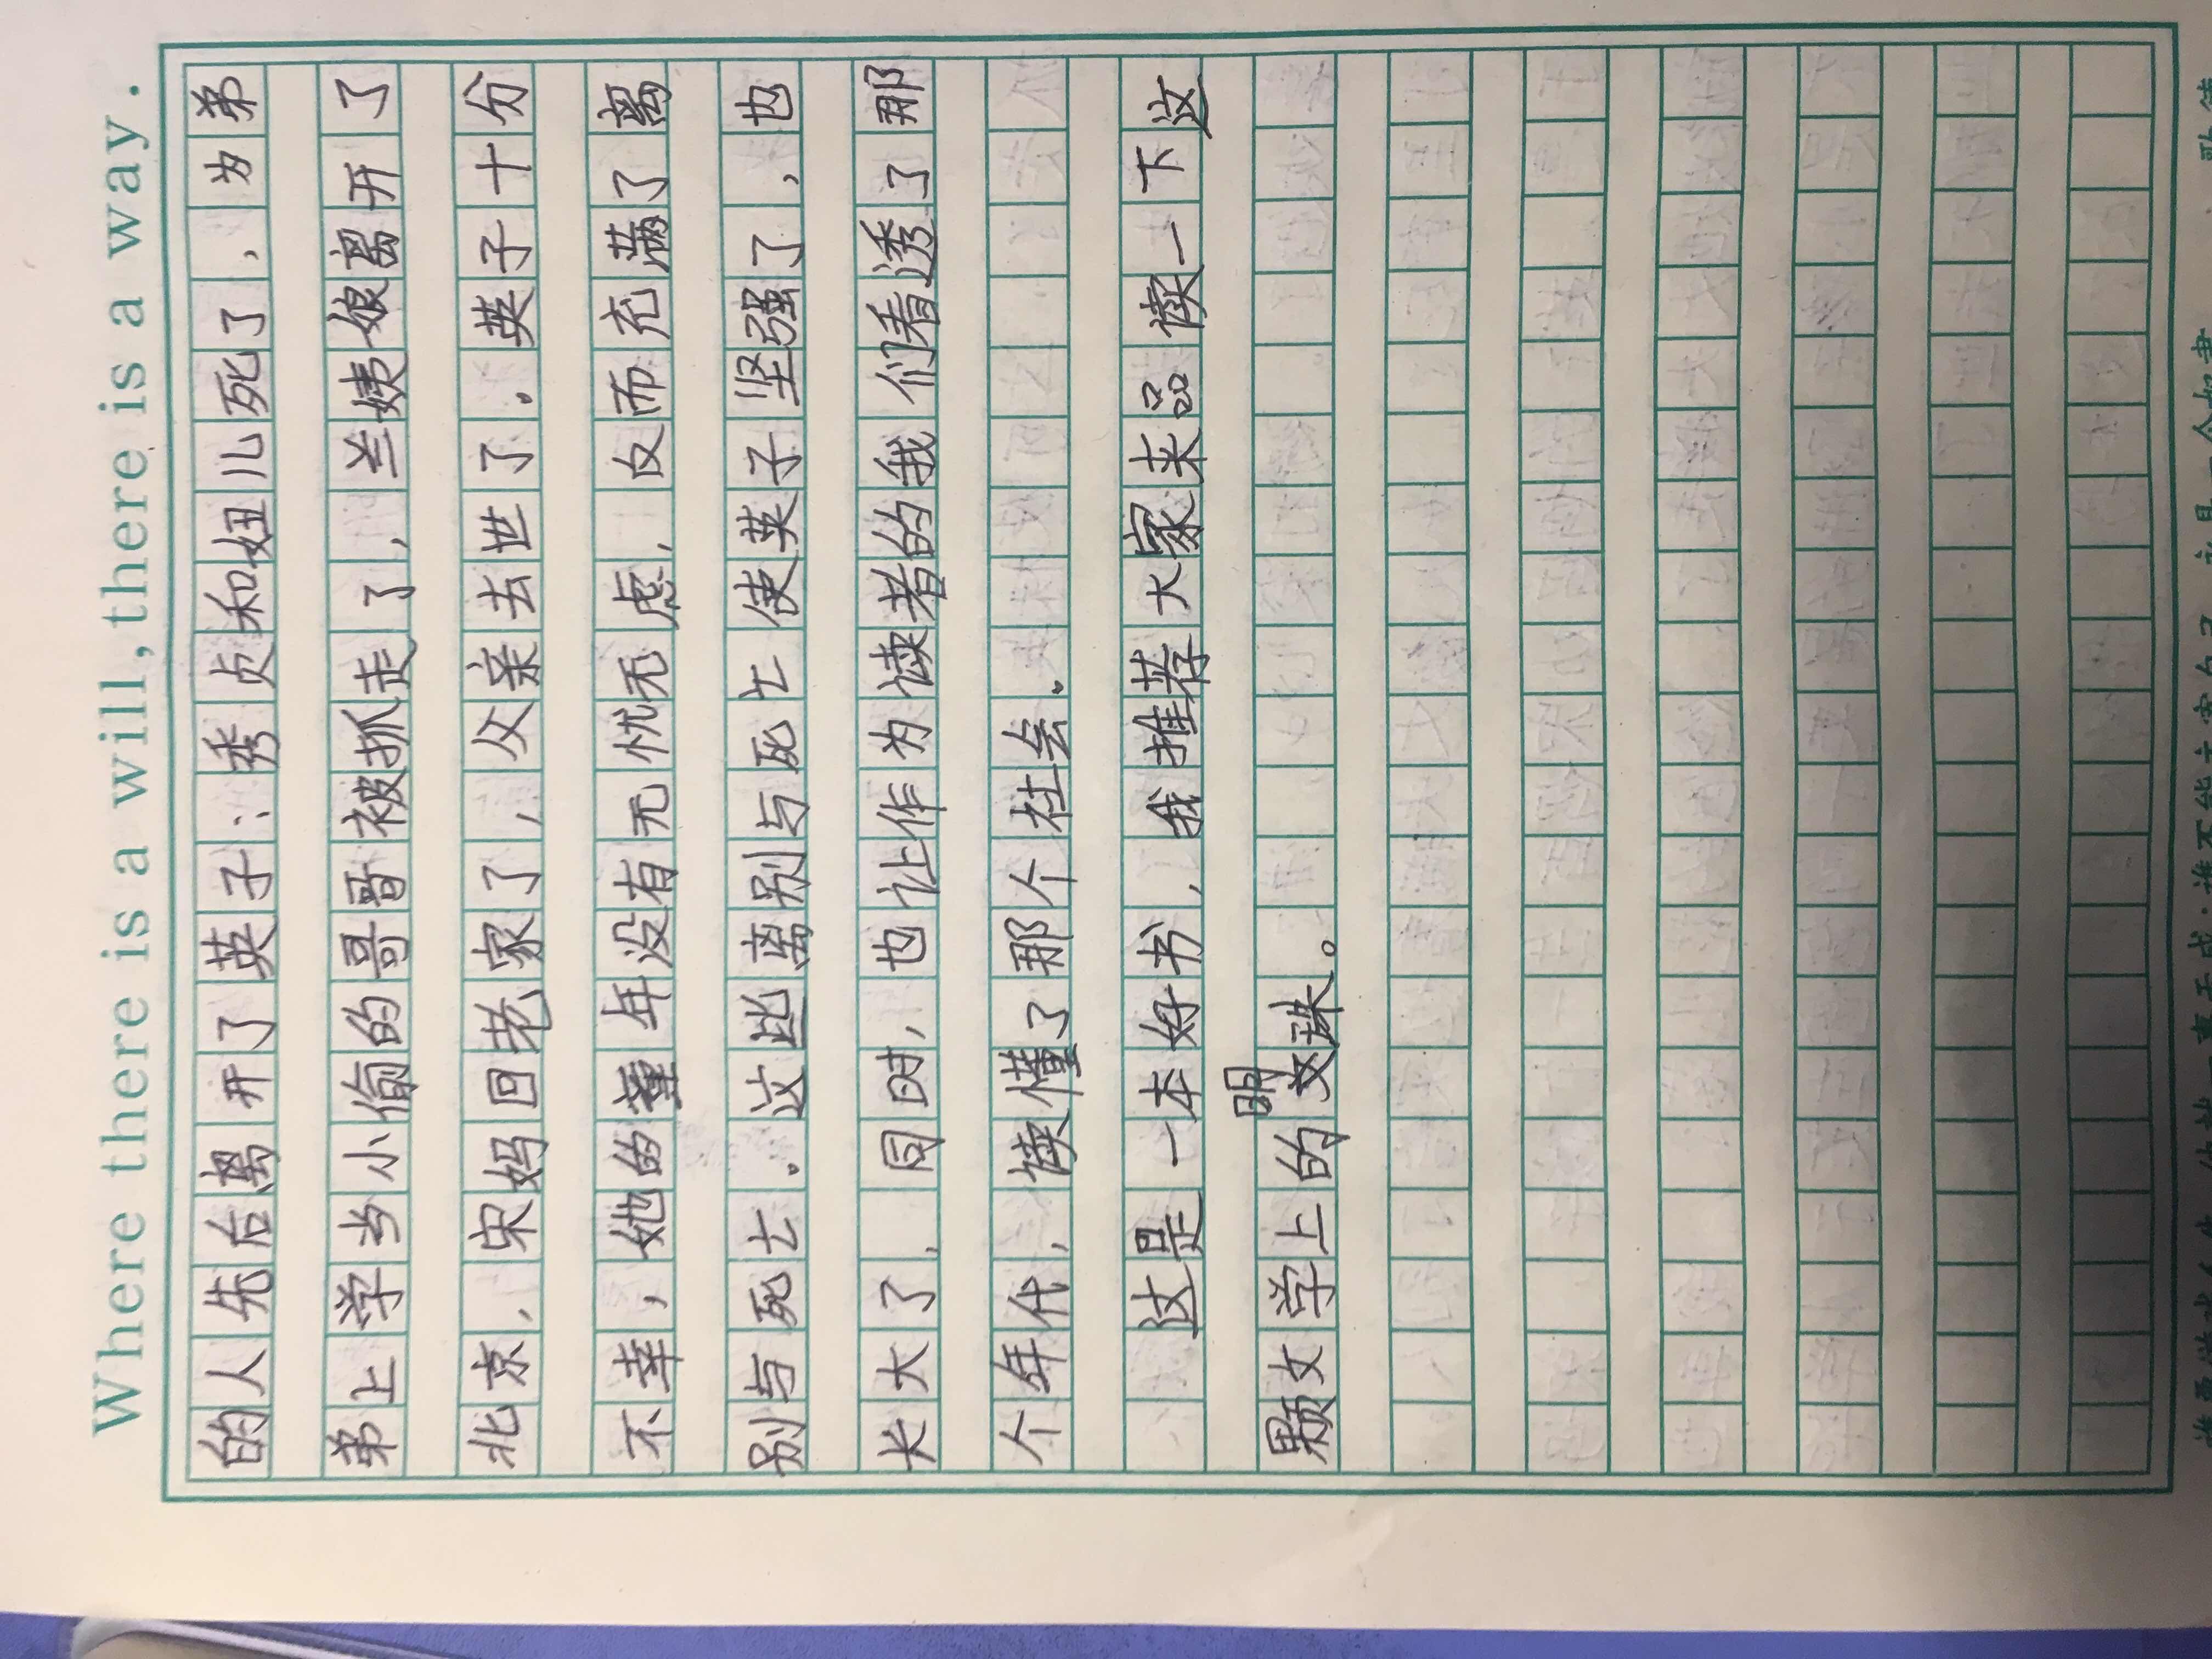 Where there is a will, there is a way.
的人先后离开了英子：秀贞和妞儿死了，为弟
弟上学当小偷的哥哥被抓走了，兰姨娘离开了
北京，宋妈回老家了，父亲去世了。英子十分
不幸，她的童年没有无忧无虑，反而充满了离
别与死亡。这些离别与死亡使英子坚强了，也
长大了，同时，也让作为读者的我们看透了那
个年代，读懂了那个社会。
这是一本好书，我推荐大家来品读一下这
颗文学上的明珠。